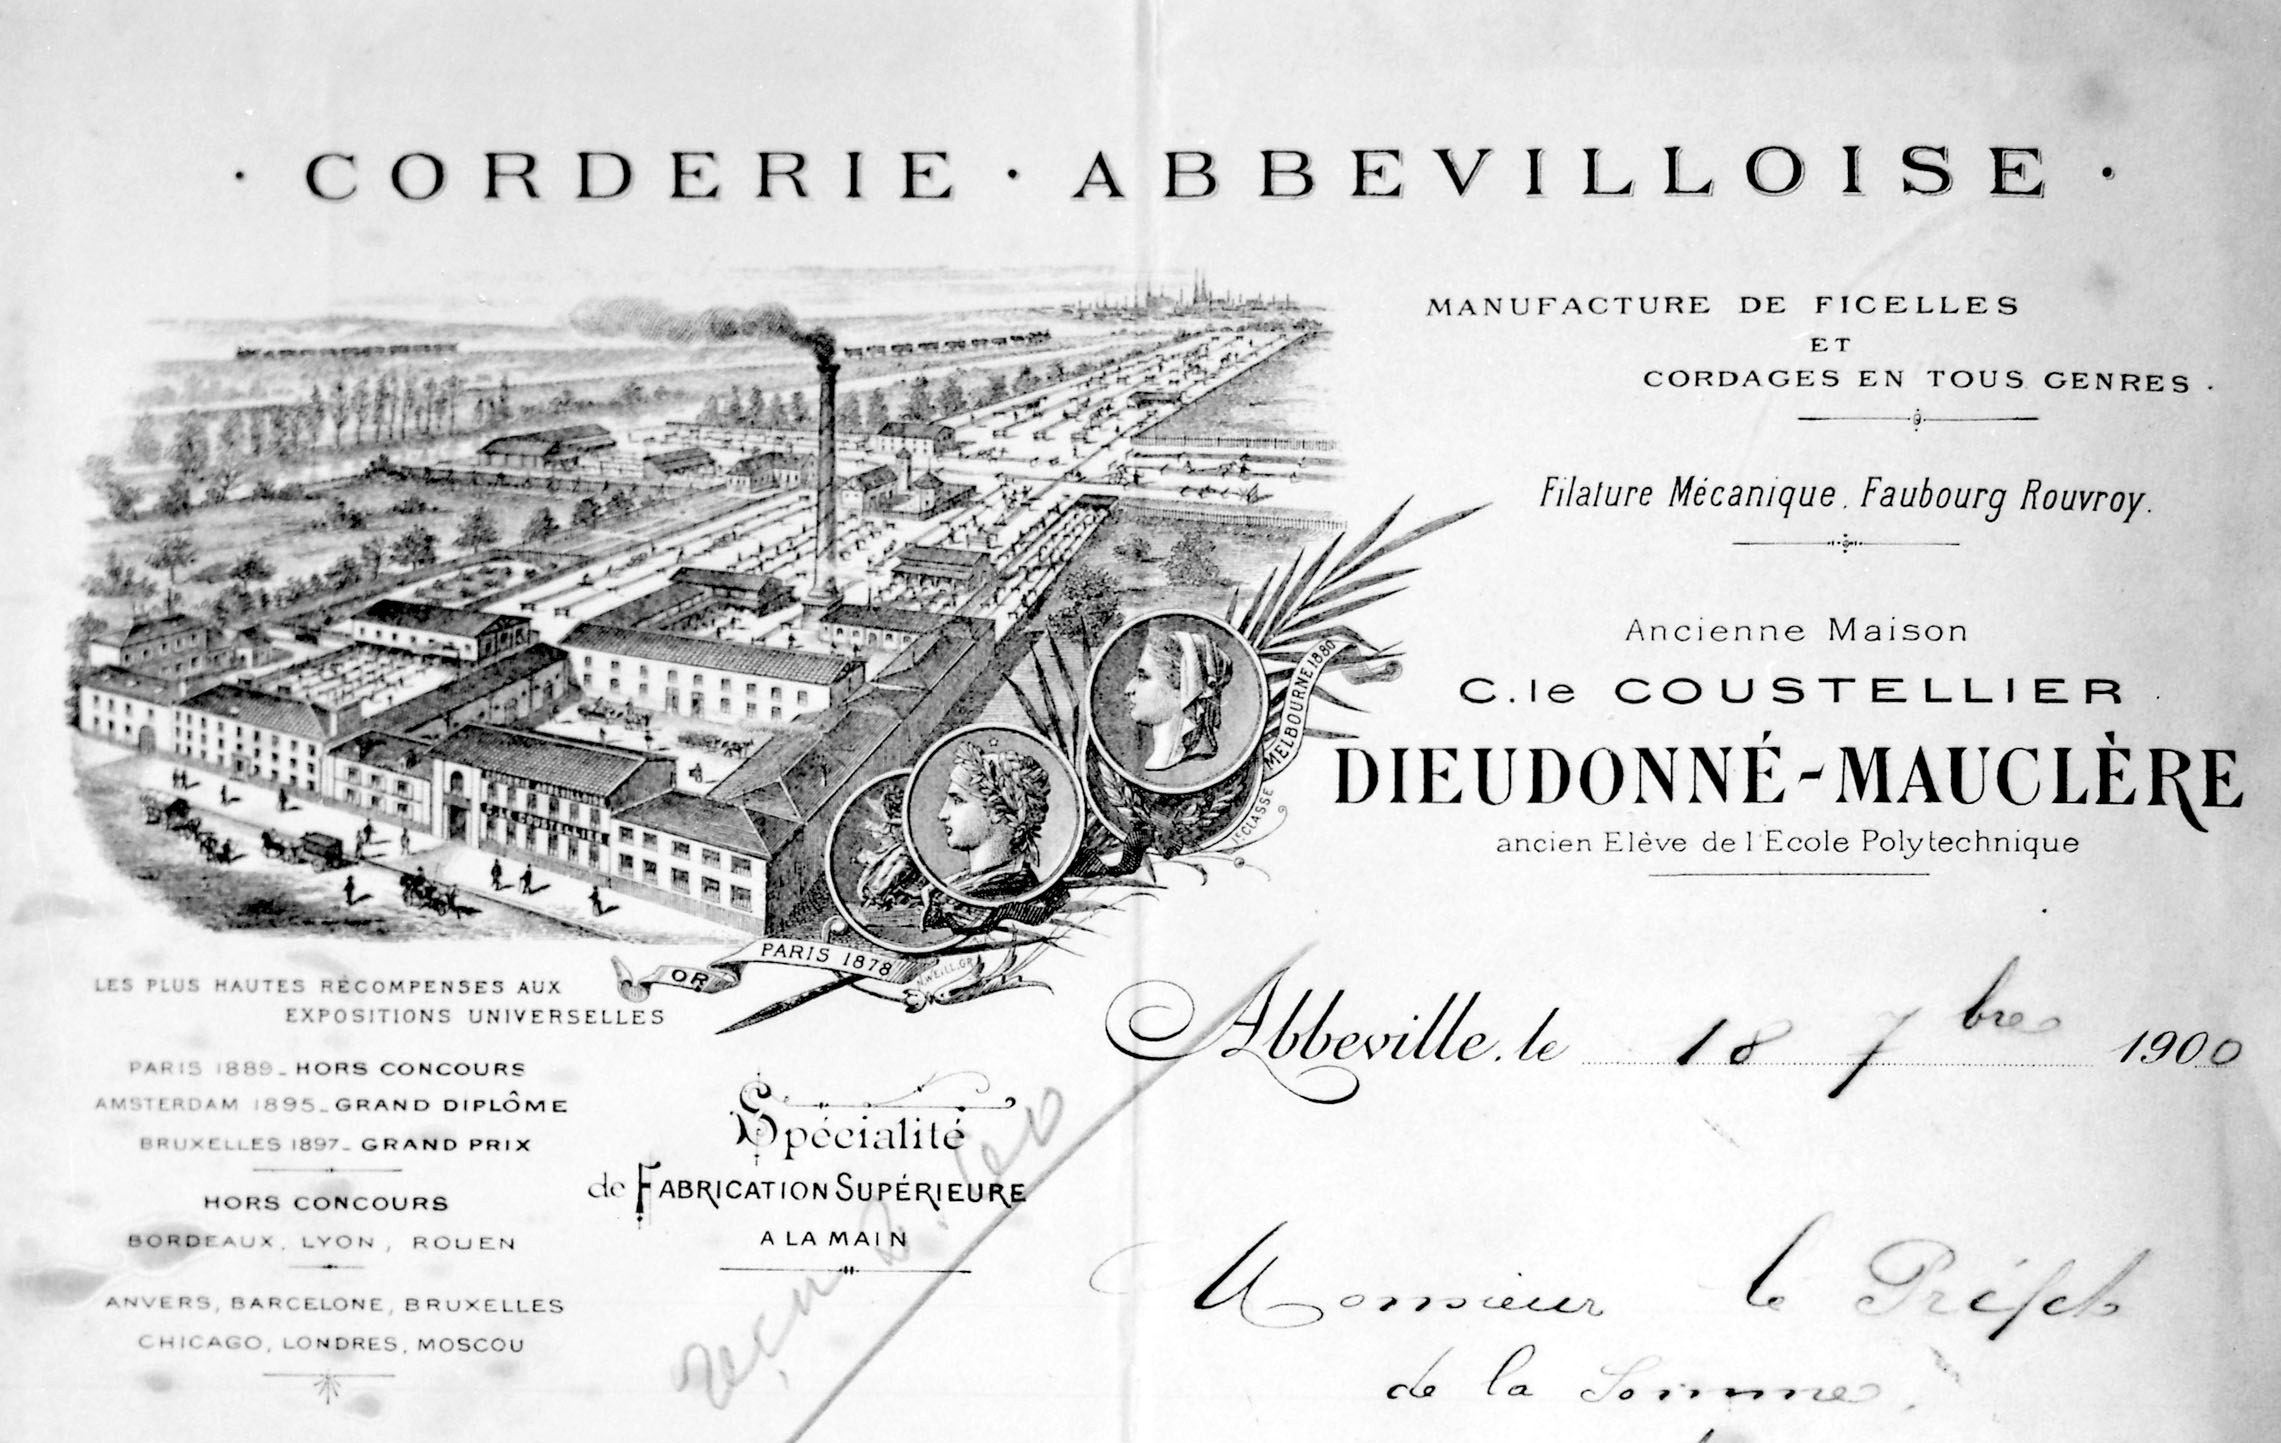 · CORDERIE · ABBEVILLOISE ·
MANUFACTURE DE FICELLES
ET
CORDAGES EN TOUS GENRES.
Filature Mécanique. Faubourg Rouvroy.
Ancienne Maison
C. le COUSTELLIER
DIEUDONNÉ-MAUCLÈRE
ancien Elève de l'Ecole Polytechnique
C. LE COUSTELLIER
MELBOURNE 1880
1e CLASSE
OR
PARIS 1878
WEILL.GR
LES PLUS HAUTES RÉCOMPENSES AUX
EXPOSITIONS UNIVERSELLES
PARIS 1889_HORS CONCOURS
AMSTERDAM 1895_GRAND DIPLÔME
BRUXELLES 1897_GRAND PRIX
HORS CONCOURS
BORDEAUX, LYON, ROUEN
ANVERS, BARCELONE, BRUXELLES
CHICAGO, LONDRES, MOSCOU
Spécialité
de FABRICATION SUPÉRIEURE
A LA MAIN
Abbeville, le 18 7bre 1900
Monsieur le Préfet
de la Somme,